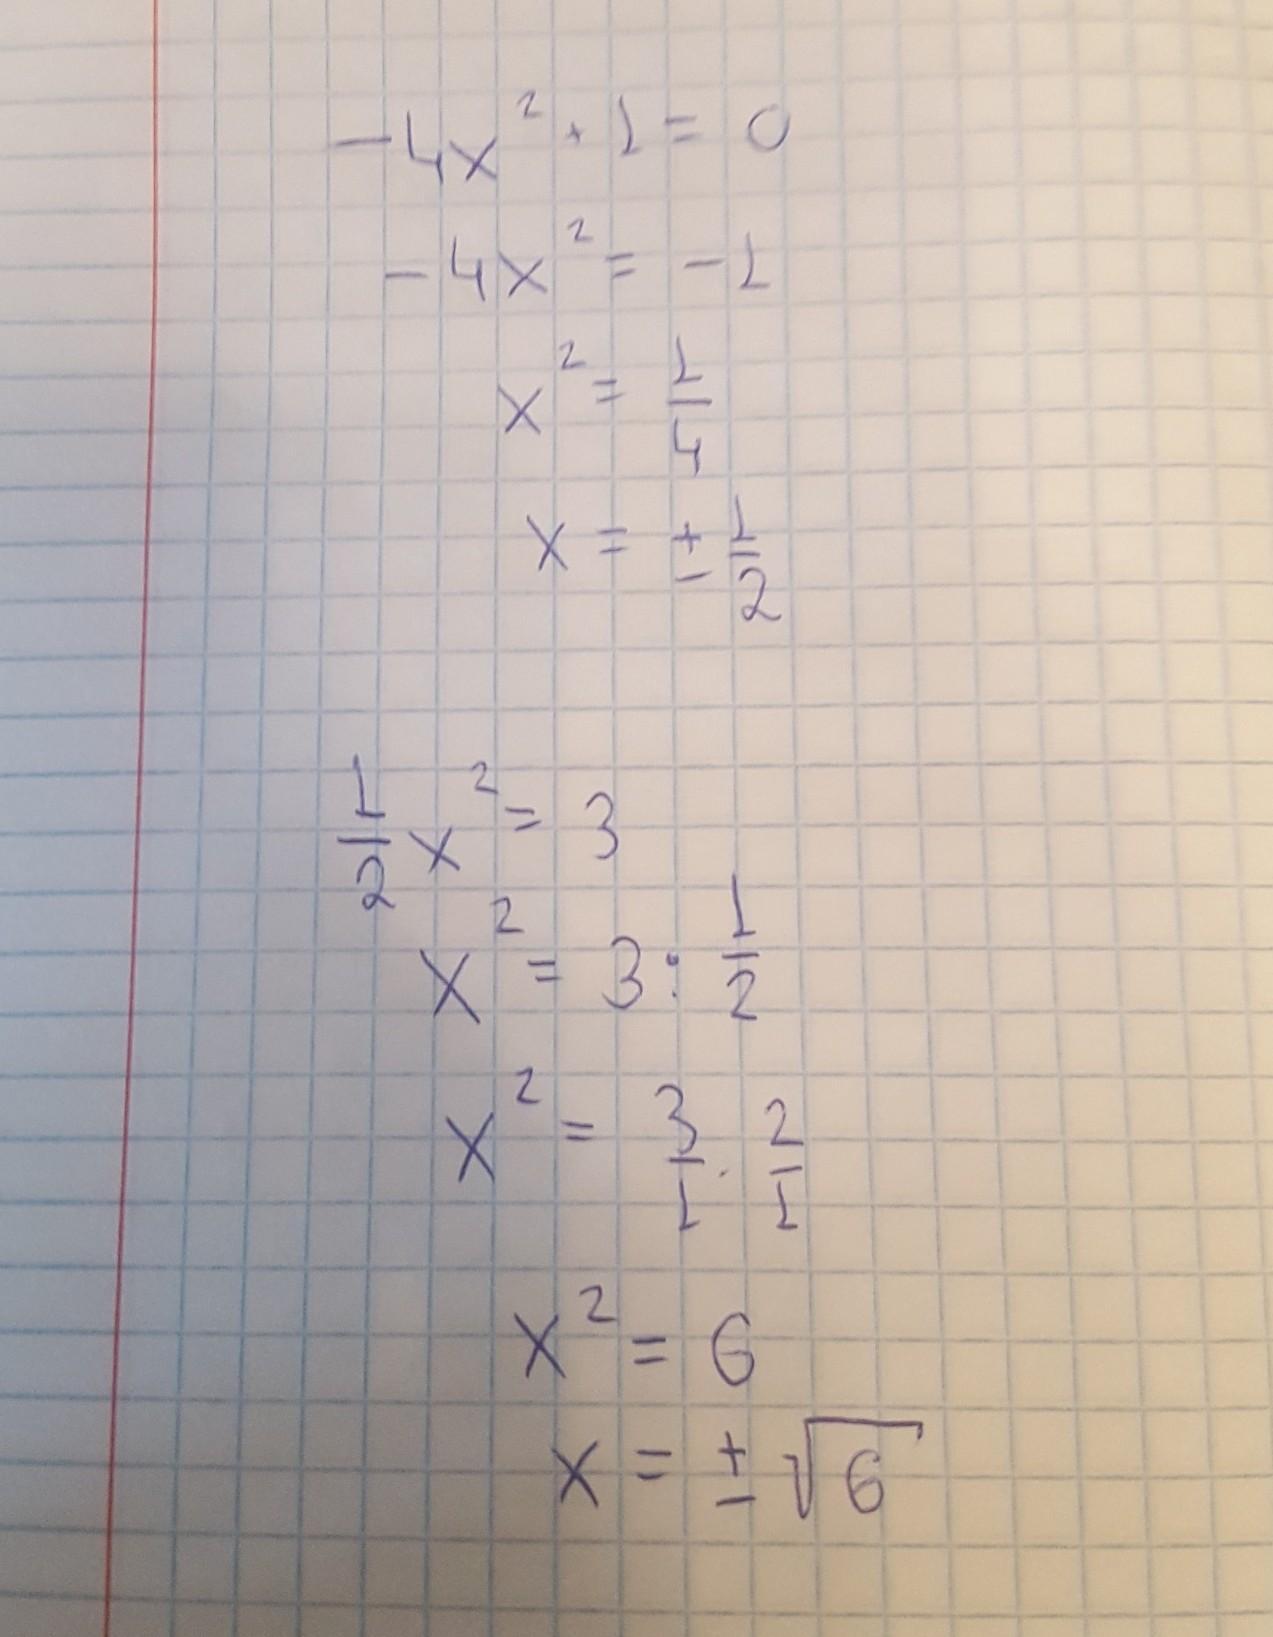 -4x² + 1 = 0
-4x² = -1
x² = 1/4
x = ± 1/2
1/2 x² = 3
x² = 3 : 1/2
x² = 3/1 · 2/1
x² = 6
x = ± √6